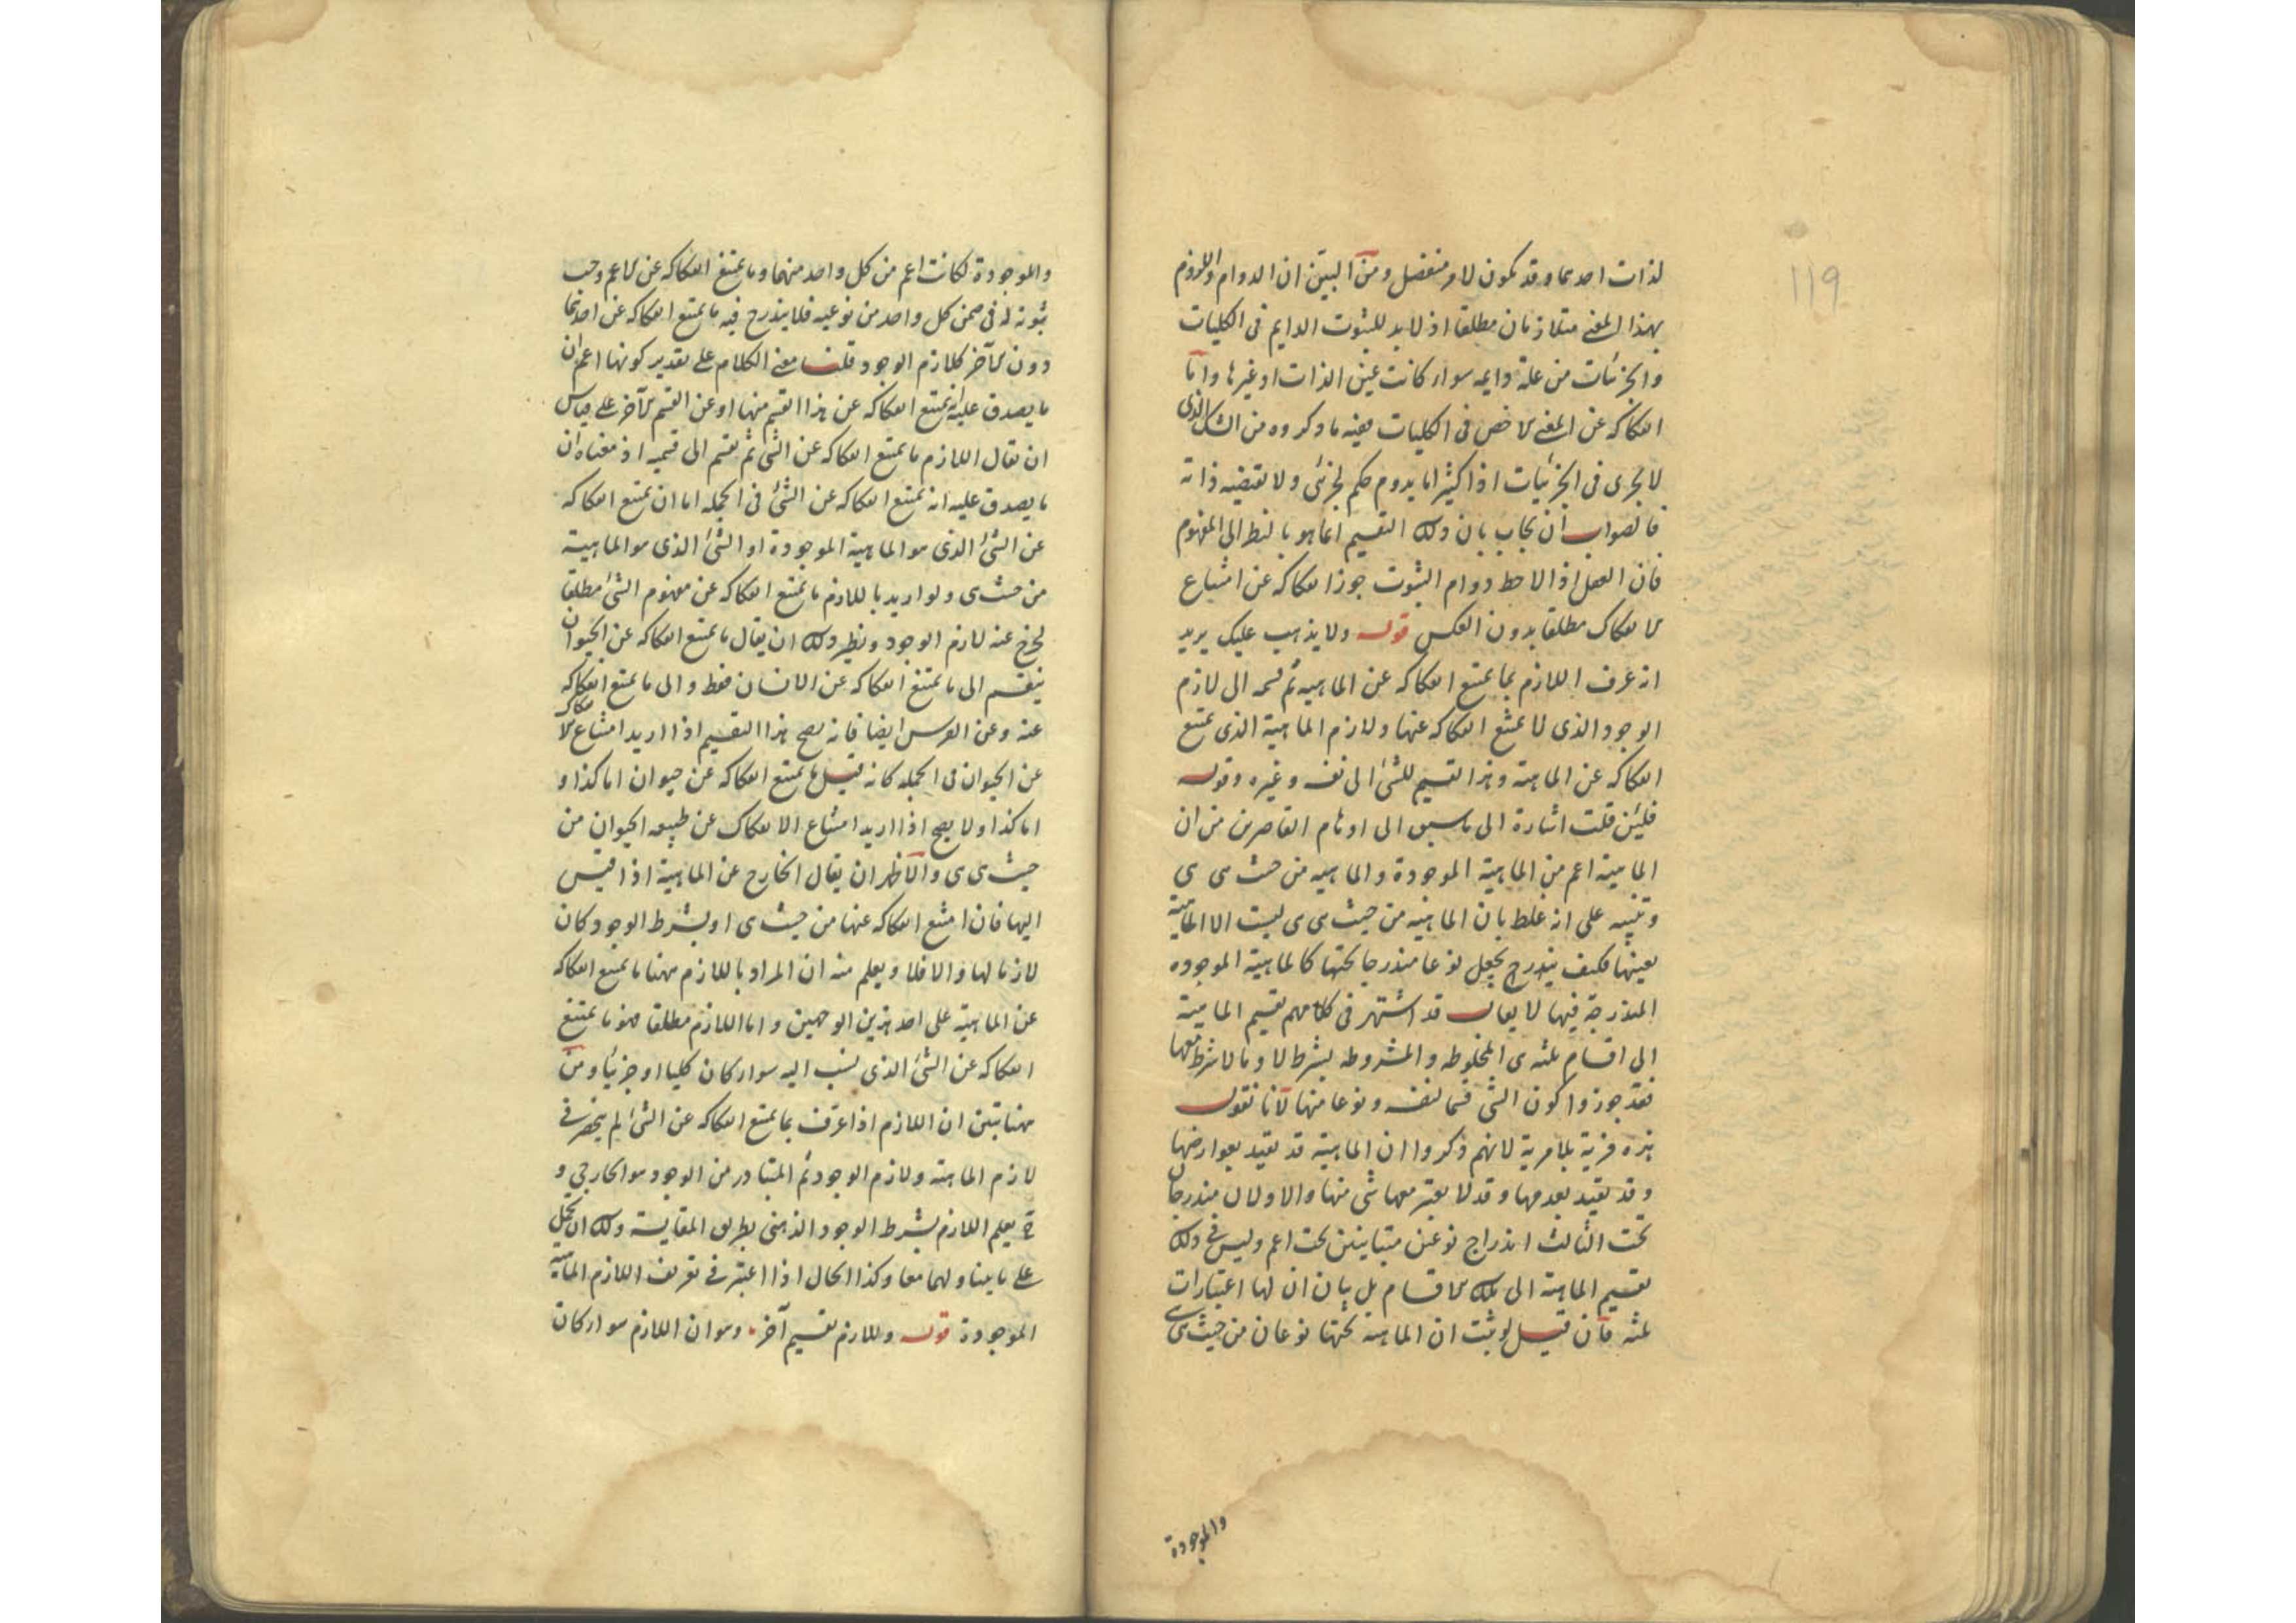 ١١٩
لذات احدهما وقد يكون لامر منفصل ومن البين ان الدوام واللزوم
بهذا المعنى متلازمان مطلقا اذ لا بد للثبوت الدايم فى الكليات
والجزئيات من علة دايمه سواء كانت عين الذات او غيرها واما
انفكاكه عن المعنى الاخص فى الكليات بعينه ما ذكروه من الشك الذى
لا يجرى فى الجزئيات اذ كثيرا ما يدوم حكم لجزئى ولا يقتضيه ذاته
فالصواب ان يجاب بان ذلك التقسيم انما هو بالنظر الى المفهوم
فان العقل اذا لاحظ دوام الثبوت جوز انفكاكه عن امتناع
الانفكاك مطلقا بدون العكس قوله ولا يذهب عليك يريد
انه عرف اللازم بما يمتنع انفكاكه عن الماهيه ثم قسمه الى لازم
الوجود الذى لا يمتنع انفكاكه عنها ولازم الماهية الذى يمتنع
انفكاكه عن الماهية وهذا تقسيم للشئ الى نفسه وغيره وقوله
فلئن قلت اشارة الى ما سبق الى اوهام القاصرين من ان
الماهية اعم من الماهية الموجودة والماهيه من حيث هى هى
وتنبيه على انه غلط بان الماهيه من حيث هى هى ليست الا الماهية
بعينها فكيف يندرج بجعل نوعا مندرجا تحتها كالماهية الموجوده
المندرجة فيها لا يقال قد اشتهر فى كلامهم تقسيم الماهية
الى اقسام ثلثه هى المخلوطه والمشروطه بشرط لا وما لا شرط معها
فقد جوزوا كون الشئ قسما لنفسه ونوعا منها لانا نقول
هذه فرية بلا مرية لانهم ذكروا ان الماهية قد تقيد بعوارضها
وقد تقيد بعدمها وقد لا يعتبر معها شئ منها والاولان مندرجان
تحت الثالث اندراج نوعين متباينين تحت اعم وليس فى ذلك
تقسيم الماهية الى تلك الاقسام بل بيان ان لها اعتبارات
ثلثه فان قيل لو ثبت ان الماهية تحتها نوعان من حيث هى هى
والموجودة
والموجودة لكانت اعم من كل واحد منهما وما يمتنع انفكاكه عن الاعم وجب
ثبوته له فى ضمن كل واحد من نوعيه فلا يندرج فيه ما يمتنع انفكاكه عن احدهما
دون الآخر كلازم الوجود قلنا معنى الكلام على تقدير كونها اعم ان
ما يصدق عليه انه يمتنع انفكاكه عن هذا القسم منها او عن القسم الآخر على قياس
ان يقال اللازم ما يمتنع انفكاكه عن الشئ ثم يقسم الى قسميه اذ معناه ان
ما يصدق عليه انه يمتنع انفكاكه عن الشئ فى الجمله اما ان يمتنع انفكاكه
عن الشئ الذى هو الماهية الموجودة او الشئ الذى هو الماهية
من حيث هى ولو اريد باللازم ما يمتنع انفكاكه عن مفهوم الشئ مطلقا
لخرج عنه لازم الوجود ونظير ذلك ان يقال ما يمتنع انفكاكه عن الحيوان
ينقسم الى ما يمتنع انفكاكه عن الانسان فقط والى ما يمتنع انفكاكه
عنه وعن الفرس ايضا فانه يصح هذا التقسيم اذا اريد امتناع الانفكاك
عن الحيوان فى الجمله كانه قيل ما يمتنع انفكاكه عن حيوان اما كذا و
اما كذا ولا يصح اذا اريد امتناع الانفكاك عن طبيعه الحيوان من
حيث هى هى والاظهر ان يقال الخارج عن الماهية اذا قيس
اليها فان امتنع انفكاكه عنها من حيث هى او بشرط الوجود كان
لازما لها والا فلا ويعلم منه ان المراد باللازم ههنا ما يمتنع انفكاكه
عن الماهية على احد هذين الوجهين واما اللازم مطلقا فهو ما يمتنع
انفكاكه عن الشئ الذى ينسب اليه سواء كان كليا او جزئيا ومن
ههنا تبين ان اللازم اذا عرف بما يمتنع انفكاكه عن الشئ لم ينحصر فى
لازم الماهية ولازم الوجود ثم المتبادر من الوجود هو الخارجى و
ح يعلم اللازم بشرط الوجود الذهنى بطريق المقايسة ولك ان تحمل
على ما يتناولهما معا وكذا الحال اذا اعتبر فى تعريف اللازم الماهية
الموجودة قوله وللازم تقسيم آخر وهو ان اللازم سواء كان